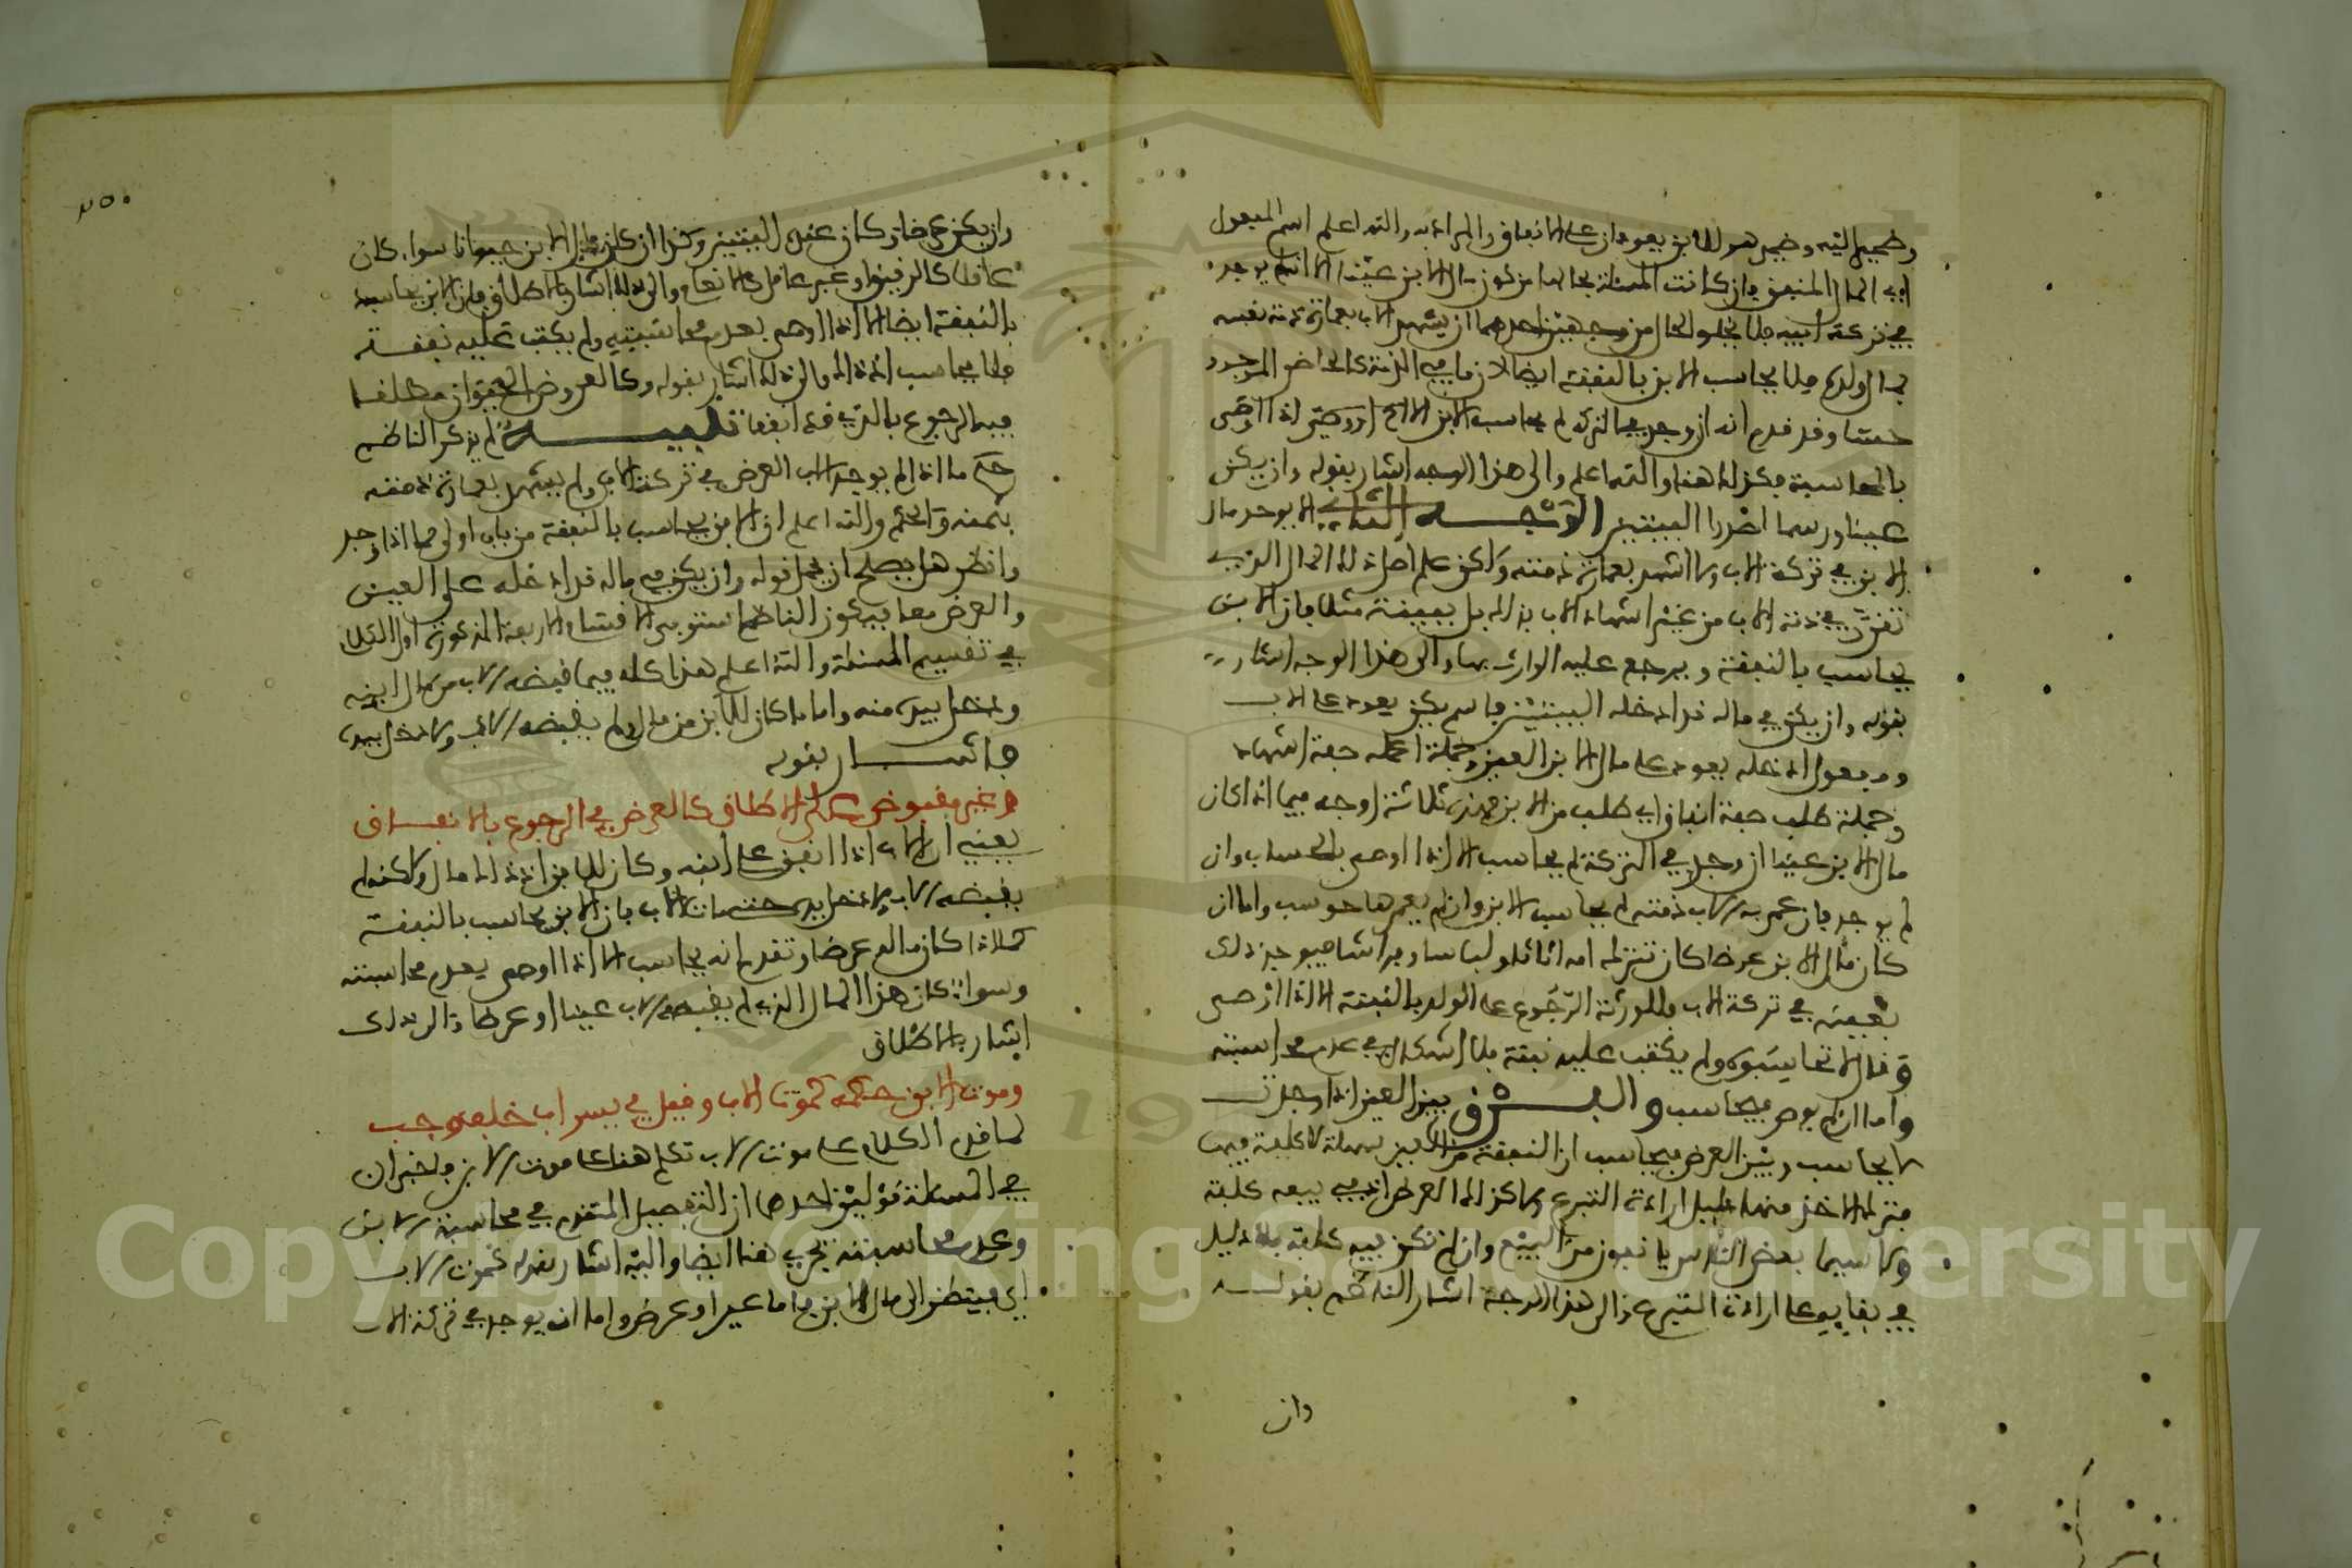 وضمير اليه وضمير هو للابن يعودان على الانفاق والمراد به والله اعلم اسم المفعول
اي المال المنفق وان كانت المسئلة بحالها من كون مال الابن عينا الا انه لم يوجد
في تركة ابيه فلا يخلو الحال من وجهين احدهما ان يشهد الاب بعمارة ذمة نفسه
بمال ولده فلا يحاسب الابن بالنفقة ايضا لان ما في الذمة كالحاضر الموجود
حسا وقد قدم انه ان وجد في التركة لم يحاسب الابن الا اذا اوصى
بالمحاسبة فكذلك هنا والله اعلم والى هذا الوجه اشار بقوله وان يكن
عينا ورسما اصدرا البيتين الوجه الثاني الا يوجد مال
الابن في تركة الاب ولا اشهد بعمارة ذمته ولكن علم اصل ذلك المال الذي
تقرر في ذمة الاب من غير اشهاد الاب بذلك بل ببينة مثلا فان الابن
يحاسب بالنفقة ويرجع عليه الوارث بها والى هذا الوجه اشار
بقوله وان يكن في ماله قد ادخله البيتين فاسم يكن يعود على الاب
ومفعول ادخله يعود على مال الابن العين وجملة اصله صفة اشهاد
وجملة طلب صفة انفاق اي طلب من الابن فهذه ثلاثة اوجه فيما اذا كان
مال الابن عينا ان وجد في التركة لم يحاسب الا اذا اوصى بالحساب وان
لم يوجد فان عمر به الاب ذمته لم يحاسب الابن وان لم يعمرها حوسب واما ان
كان مال الابن عرضا كان تترك له امه اثاثا ولباسا وفراشا فيوجد ذلك
بعينه في تركة الاب فللورثة الرجوع على الولد بالنفقة الا اذا اوصى
وقال لا تحاسبوه ولم يكتب عليه نفقة فلا اشكال في عدم محاسبته
واما ان لم يوص فيحاسب والفرق بين العين اذا وجدت
لا يحاسب وبين العرض فيحاسب ان النفقة من العين سهلة لا كلفة فيها
فترك الاخذ منها دليل ارادة التبرع ولا كذلك العرض اذ في بيعه كلفة
ولا سيما بعض الناس يانفون من البيع وان لم تكن فيه كلفة فلا دليل
في بقائه على ارادة التبرع والى هذا الوجه اشار الناظم بقوله
وان
٢٥٠
وان يكن عرضا وكان عنده البيتين وكذا ان كان مال الابن حيوانا سواء كان
عاقلا كالرقيق او غير عاقل كالانعام والى ذلك اشار بالاطلاق فان الابن يحاسب
بالنفقة ايضا الا اذا اوصى بعدم محاسبته ولم يكتب عليه نفقته
فلا يحاسب اذ ذاك والى ذلك اشار بقوله وكالعروض الحيوان مطلقا
فيه الرجوع بالذي قد انفقا تنبيه لم يذكر الناظم
حكم ما اذا لم يوجد العرض في تركة الاب ولم يشهد بعمارة ذمته
بثمنه والحكم والله اعلم ان الابن يحاسب بالنفقة من باب اولى مما اذا وجد
وانظر هل يصلح ان يحمل قوله وان يكن في ماله قد ادخله على العين
والعرض معا فيكون الناظم استوفى الاقسام الاربعة المذكورة اول الكلام
في تقسيم المسئلة والله اعلم هذا كله فيما قبضه الاب من مال ابنه
ودخل بيده منه واما ما كان للابن من مال ولم يقبضه الاب ولا دخل بيده
فاشار بقوله
وغير مقبوض على الاطلاق كالعرض في الرجوع بالانفاق
يعني ان الاب اذا انفق على ابنه وكان للابن اذ ذاك مال ولكن لم
يقبضه الاب ولا دخل بيده حتى مات الاب فان الابن يحاسب بالنفقة
كما اذا كان ماله عرضا وتقدم انه يحاسب الا اذا اوصى بعدم محاسبته
وسواء كان هذا المال الذي لم يقبضه الاب عينا او عرضا والى ذلك
اشار بالاطلاق
وموت الابن حكمه كموت الاب وقيل في يسر اب خلف وجب
لما قدم الكلام على موت الاب تكلم هنا على موت الابن فاخبر ان
في المسئلة قولين احدهما ان التفصيل المتقدم في محاسبة الابن
وعدم محاسبته يجري هنا ايضا واليه اشار بقوله كموت الاب
اي فينظر الى مال الابن فاما عين او عرض واما ان يوجد في تركة الاب
Copyright © King Saud University